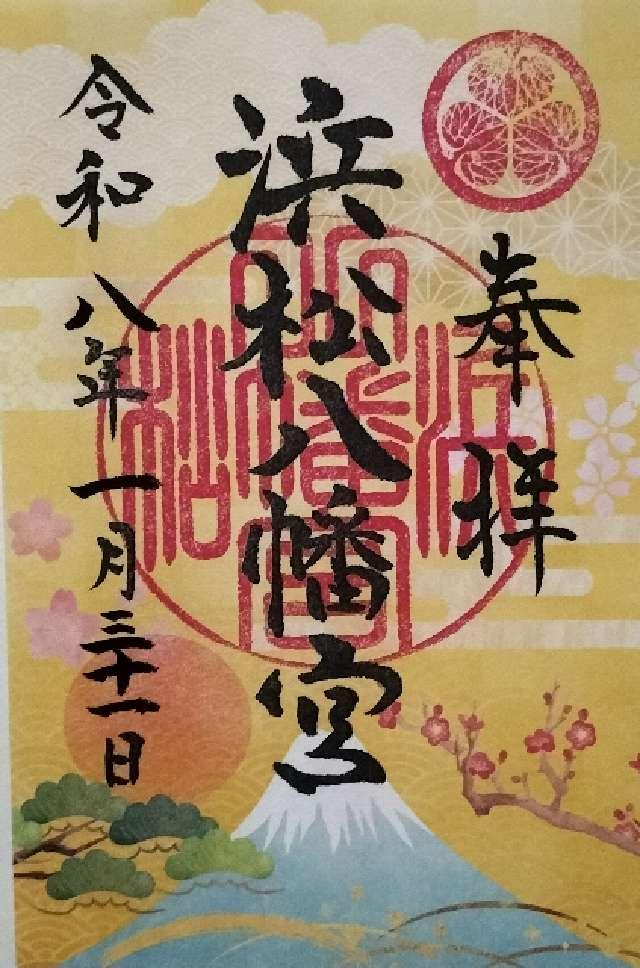 奉拝
浜松八幡宮
令和八年一月三十一日